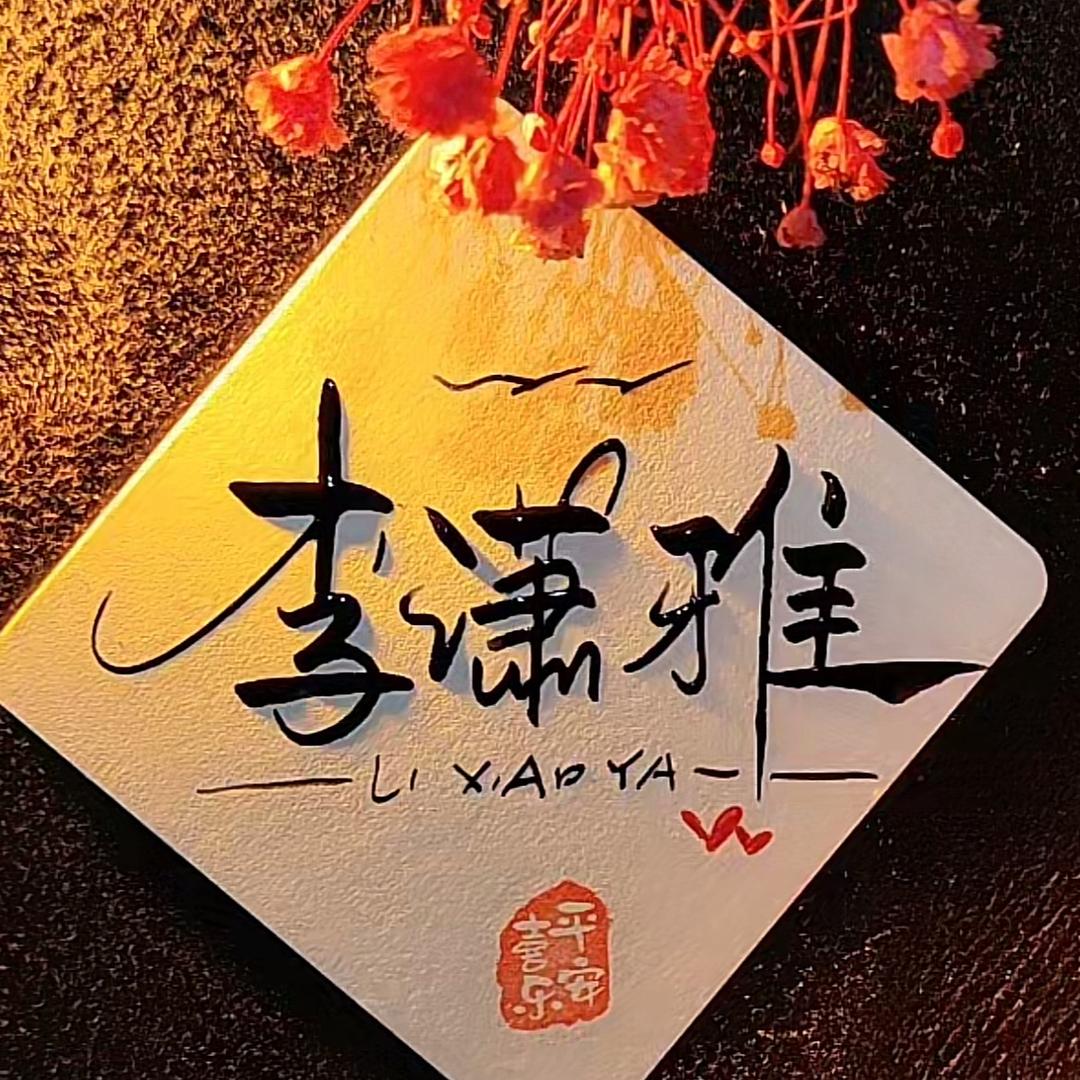 李潇雅
LI XIAO YA
平安
喜乐